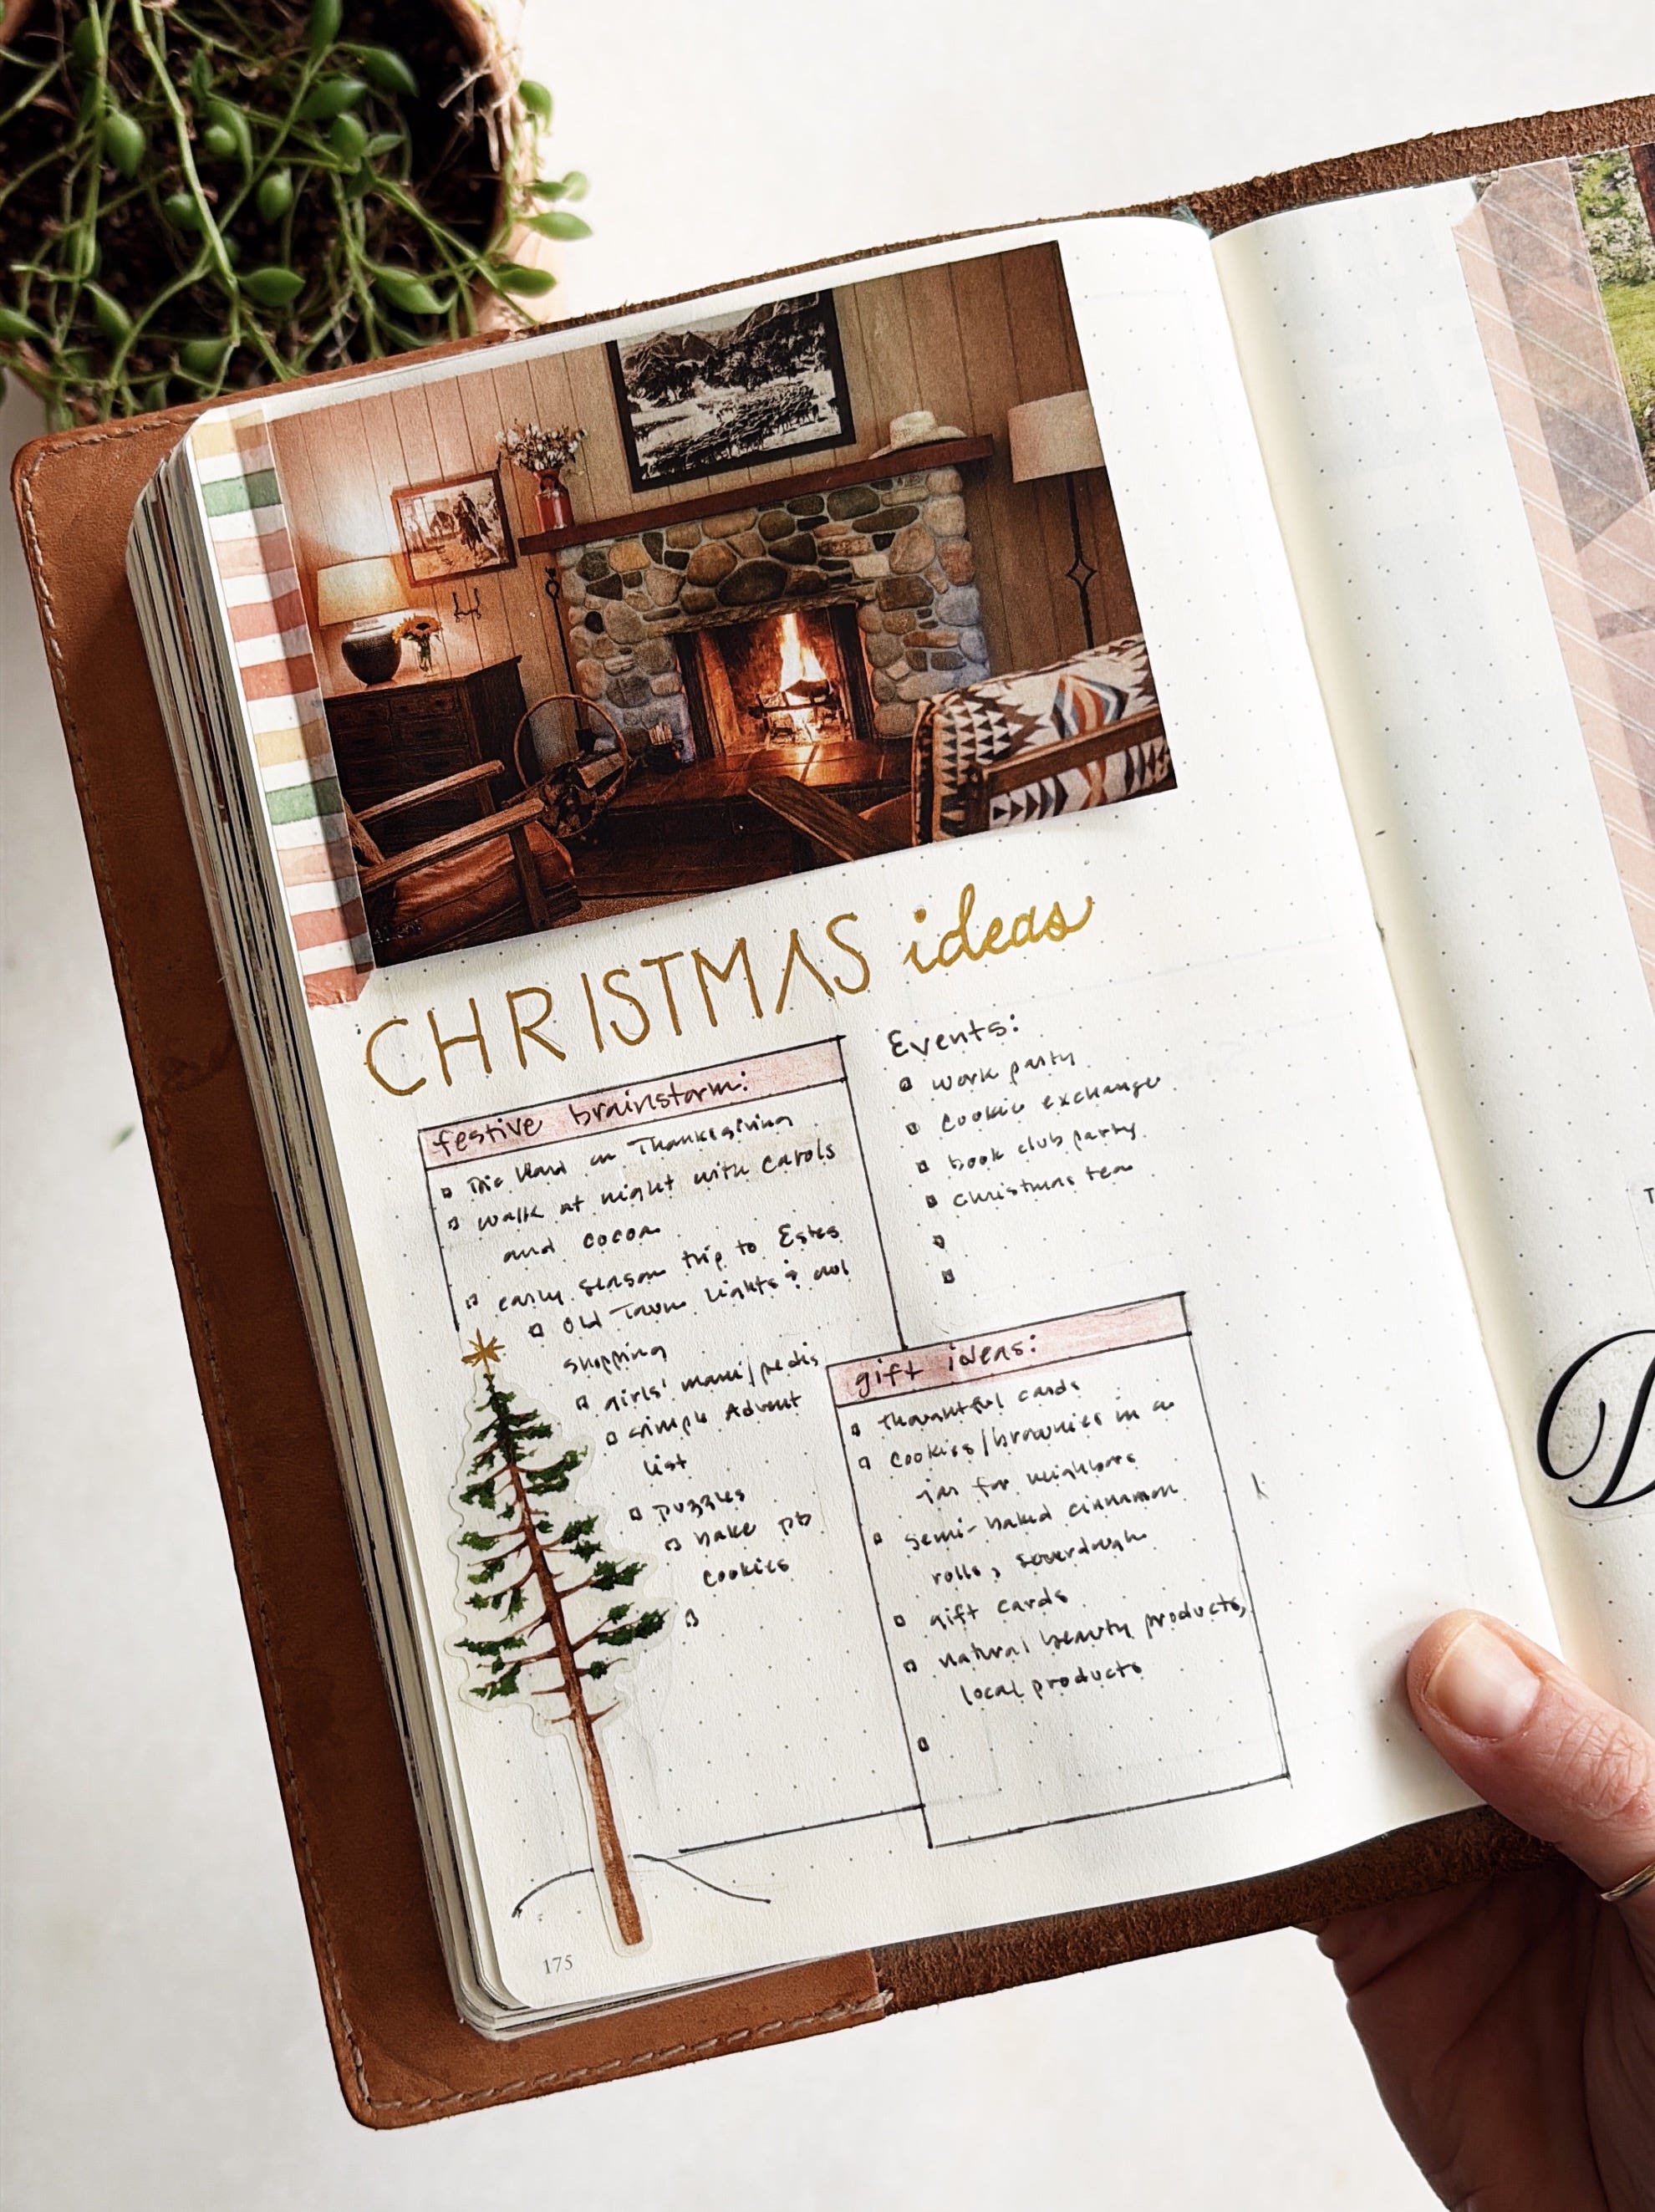 CHRISTMAS ideas
festive brainstorm:
Die Hard on Thanksgiving
walk at night with carols
and cocoa
early season trip to Estes
Old Town lights &
shopping
girls' mani/pedis
simple Advent
list
puzzles
bake pb
cookies
Events:
work party
cookie exchange
book club party
Christmas tea
gift ideas:
thoughtful cards
cookies/brownies in a
jar for neighbors
semi-baked cinnamon
rolls, sourdough
gift cards
natural beauty products,
local products
175